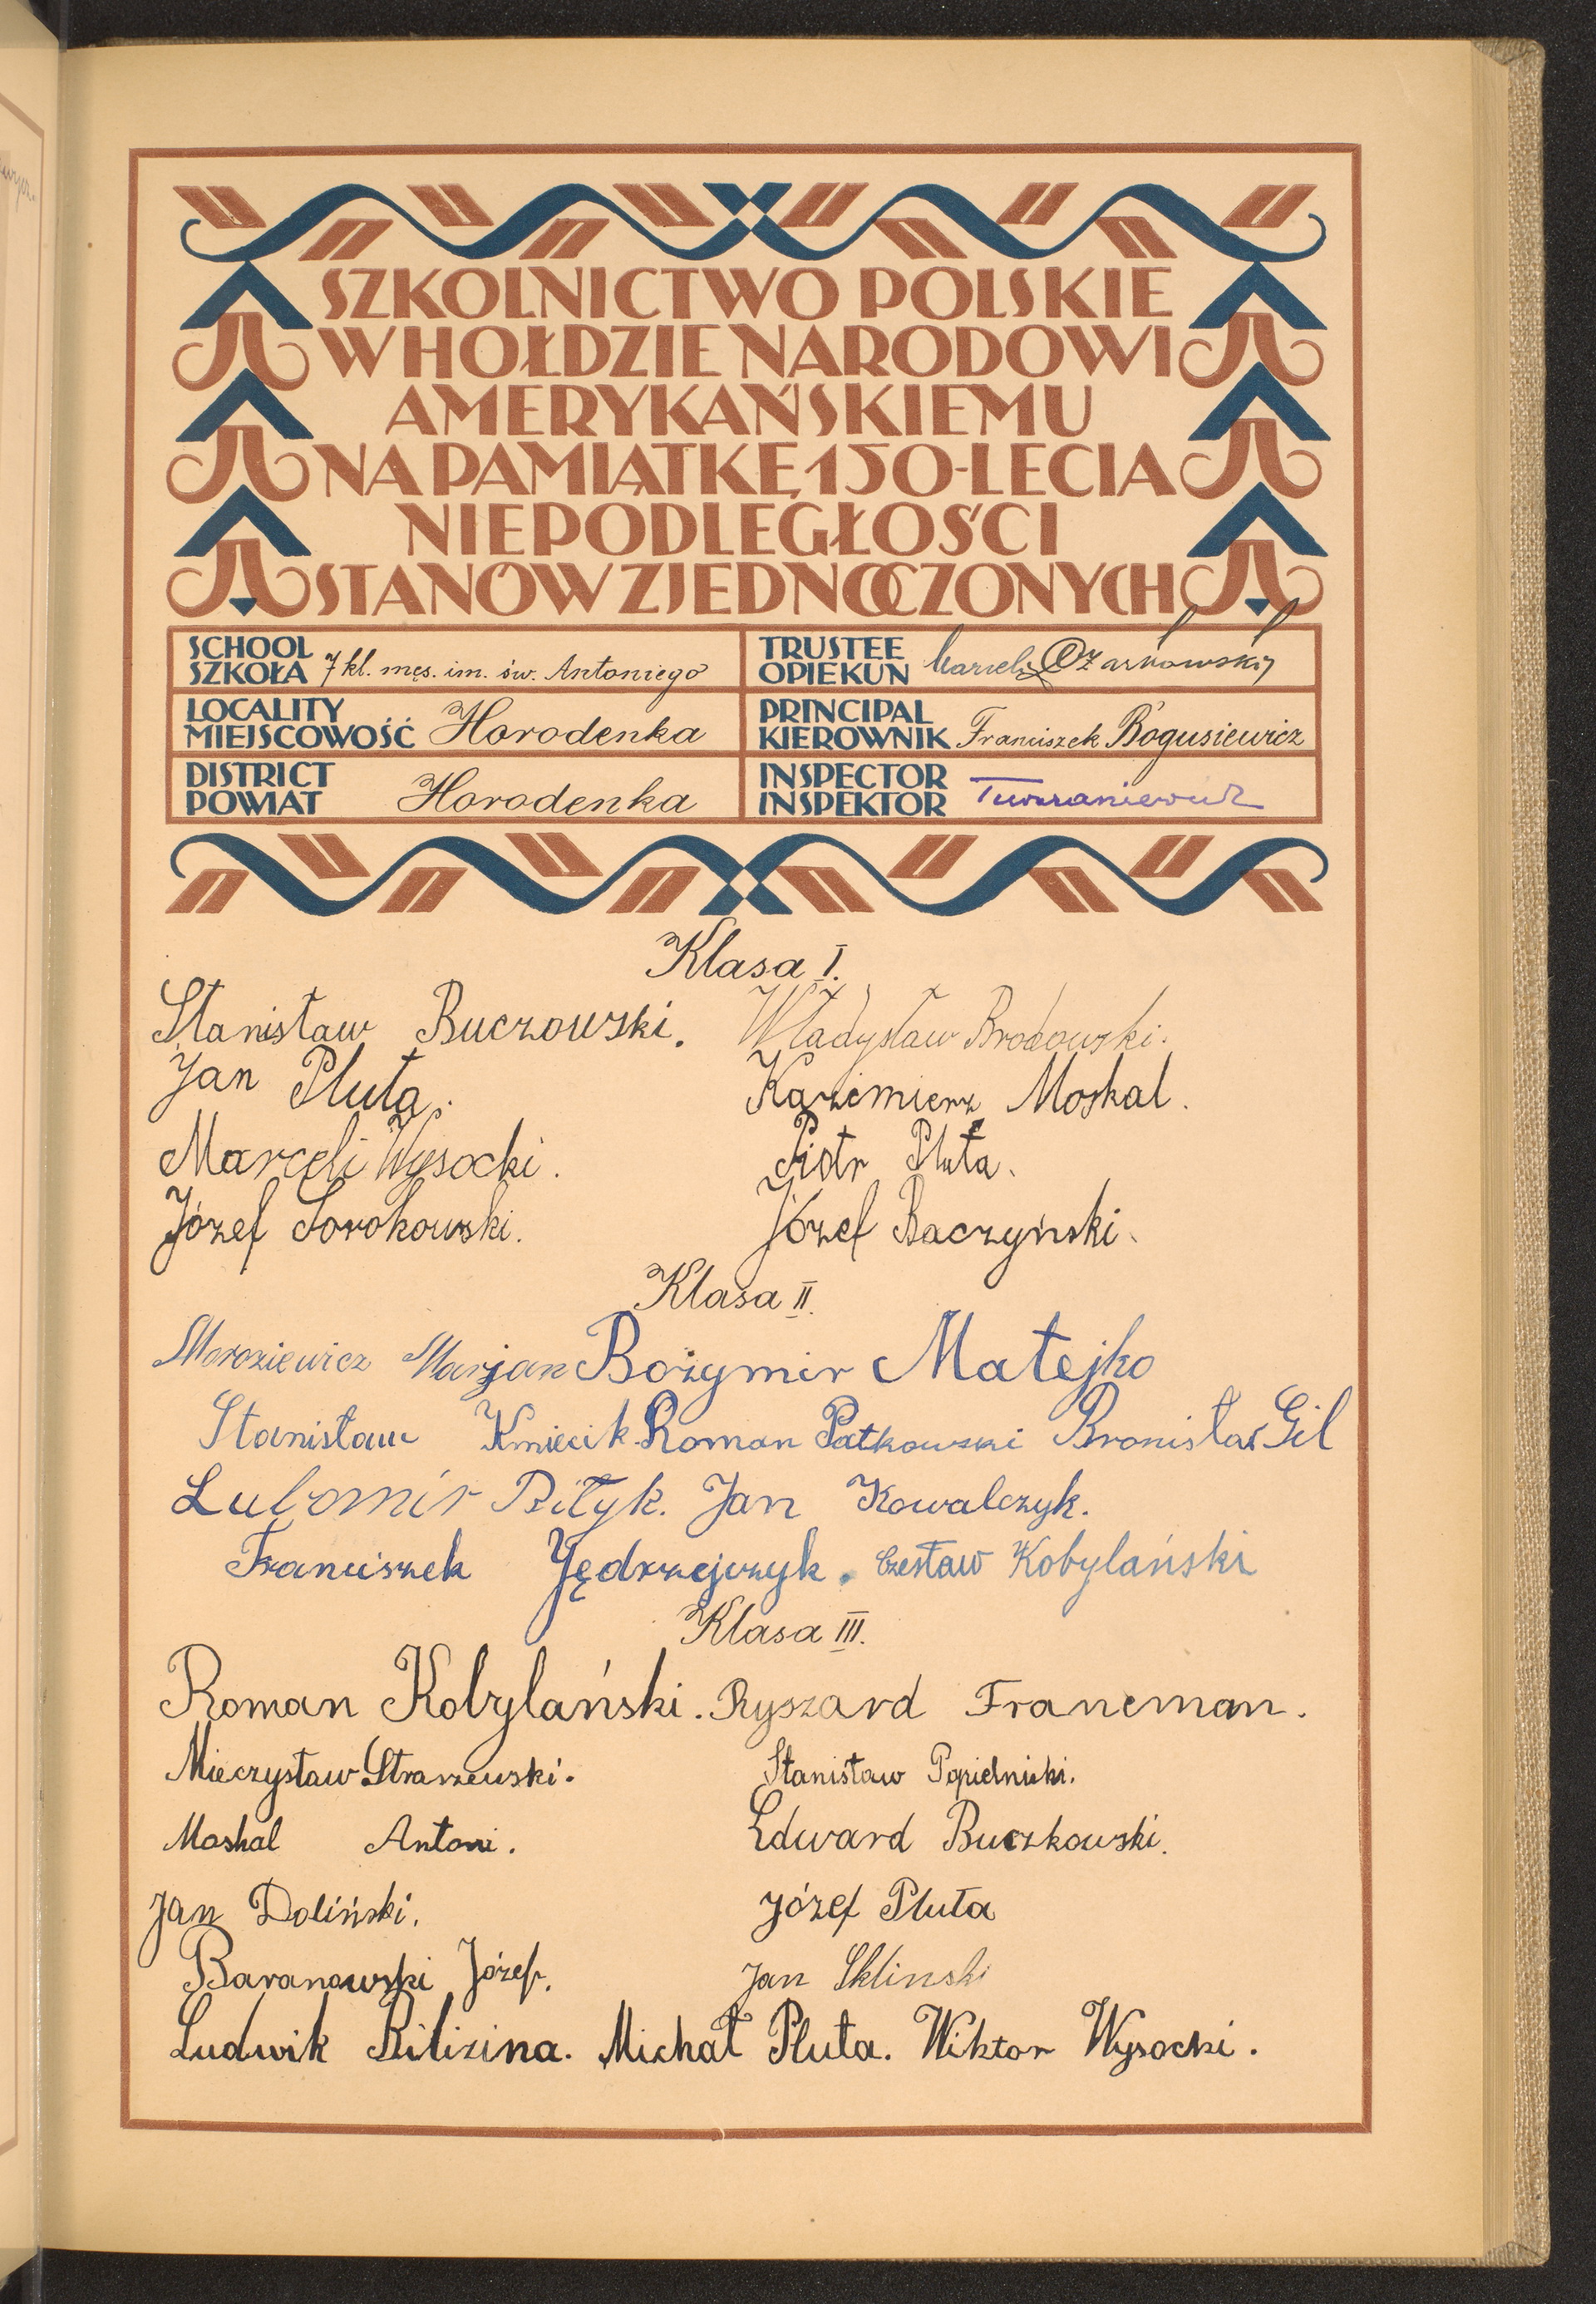 SZKOLNICTWO POLSKIE
W HOŁDZIE NARODOWI
AMERYKAŃSKIEMU
NA PAMIĄTKĘ 150-LECIA
NIEPODLEGŁOŚCI
STANÓW ZJEDNOCZONYCH
SCHOOL
SZKOŁA 7 kl. męs. im. św. Antoniego
TRUSTEE
OPIEKUN
LOCALITY
MIEJSCOWOŚĆ Horodenka
PRINCIPAL
KIEROWNIK Franciszek Bogusiewicz
DISTRICT
POWIAT Horodenka
INSPECTOR
INSPEKTOR
Klasa I.
Stanisław Buczowski. Władysław Brodowski.
Jan Pluta. Kazimierz Moskal.
Marceli Wysocki. Piotr Pluta.
Józef Sorokowski. Józef Baczyński.
Klasa II.
Moroziewicz Marjan Bożymir Matejko
Stanisław Kmiecik Roman Patkowski Bronisław Gil
Lubomir Pityk. Jan Kowalczyk.
Franciszek Jędrzejczyk. Czesław Kobylański
Klasa III.
Roman Kobylański. Ryszard Franeman.
Mieczysław Straszewski. Stanisław Popielnicki.
Moskal Antoni. Edward Buczkowski.
Jan Doliński. Józef Pluta
Baranowski Józef. Jan Sklinski
Ludwik Bilizina. Michał Pluta. Wiktor Wysocki.